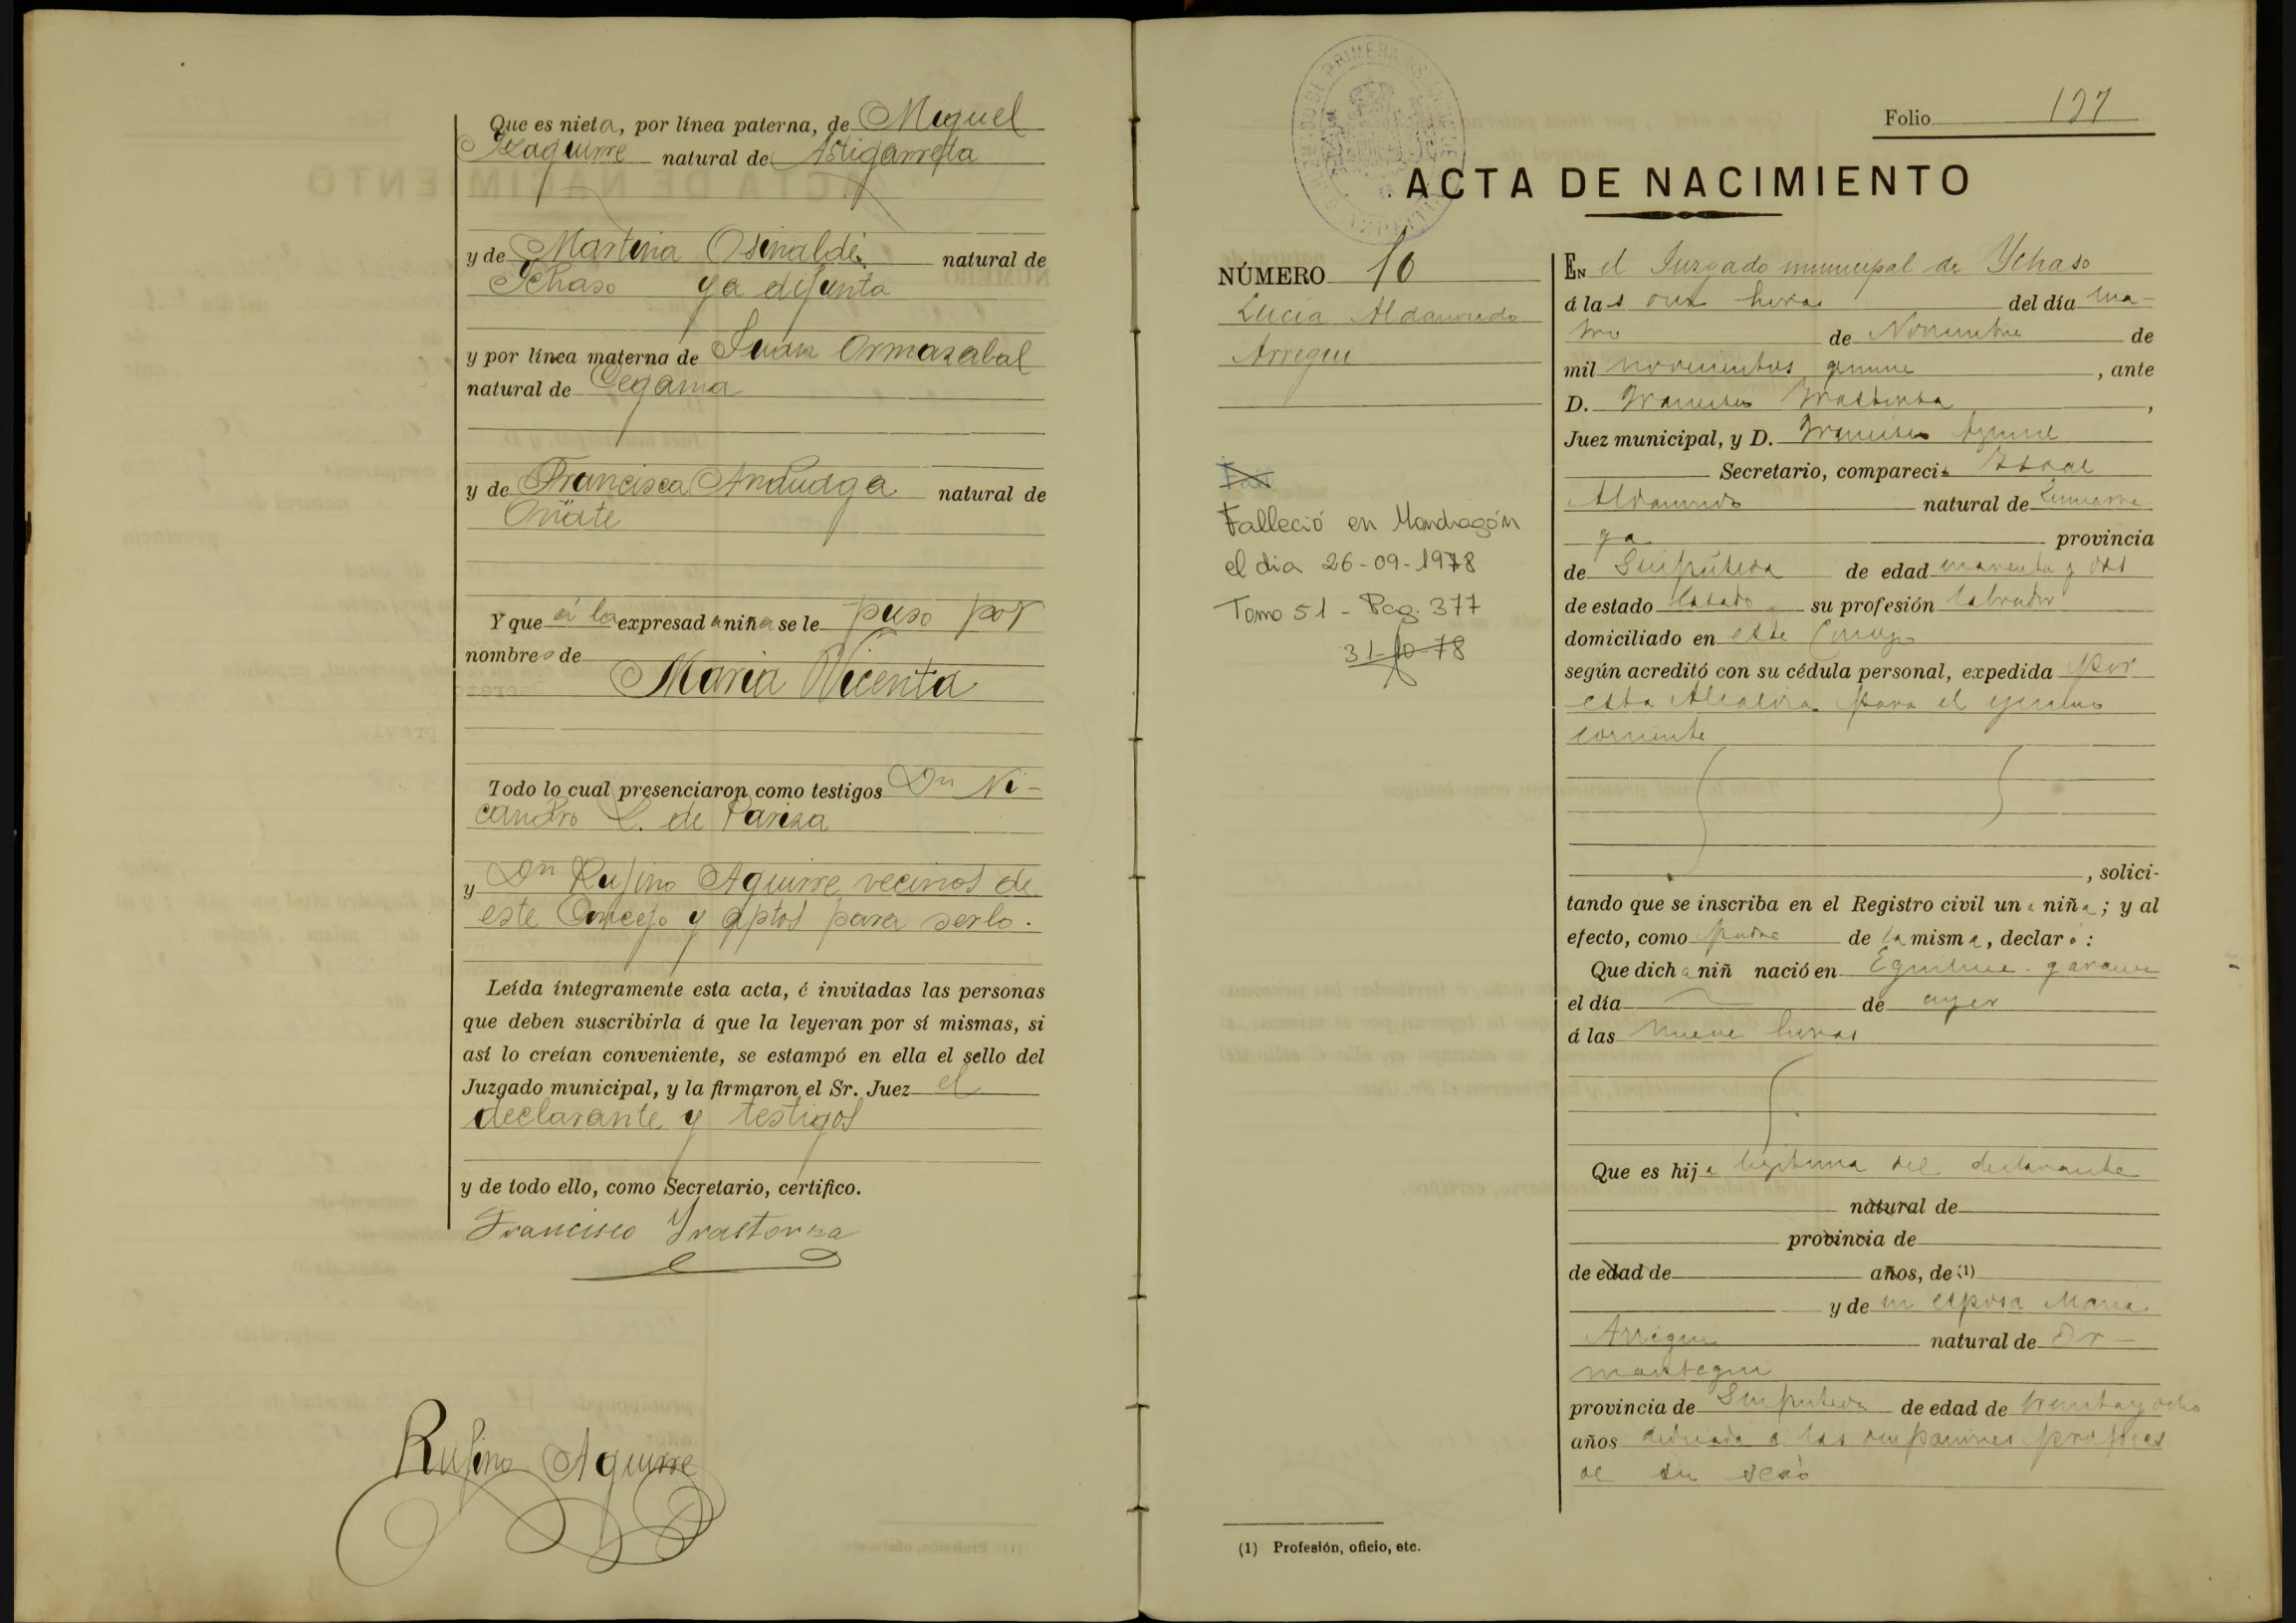 Que es nieta, por línea paterna, de Miguel
Yzaguirre natural de Astigarreta
y de Martina Osinalde natural de
Ychaso ya difunta
y por línea materna de Juan Ormazabal
natural de Cegama
y de Francisca Anduaga natural de
Oñate
Y que á la expresada niña se le puso por
nombres de
Maria Vicenta
Todo lo cual presenciaron como testigos Dn Ni-
candro L. de Pariza
y Dn Rufino Aguirre vecinos de
este Concejo y aptos para serlo.
Leída íntegramente esta acta, é invitadas las personas
que deben suscribirla á que la leyeran por sí mismas, si
así lo creían conveniente, se estampó en ella el sello del
Juzgado municipal, y la firmaron el Sr. Juez el
declarante y testigos
y de todo ello, como Secretario, certifico.
Francisco Yrastorza
Rufino Aguirre
Folio 127
ACTA DE NACIMIENTO
NÚMERO 10
Lucia Aldasoro
Arregui
Falleció en Mondragón
el dia 26-09-1978
Tomo 51 - Pag. 377
31-10-78
EN el Juzgado municipal de Ychaso
á las once horas del día cua-
tro de Noviembre de
mil novecientos quince, ante
D. Francisco Yrastorza,
Juez municipal, y D. Francisco Aguirre
Secretario, compareció
natural de Zumarra
ga provincia
de Guipúzcoa de edad cuarenta y dos
de estado casado su profesión labrador
domiciliado en este Concejo
según acreditó con su cédula personal, expedida por
esta Alcaldia para el ejercicio
corriente
, solici-
tando que se inscriba en el Registro civil una niña; y al
efecto, como padre de la misma, declaró:
Que dicha niñ nació en
el día de ayer
á las nueve horas
Que es hija legitima del declarante
natural de
provincia de
de edad de años, de (1)
y de su esposa Maria
Arregui natural de Or-
maiztegui
provincia de Guipuzcoa de edad de treinta y ocho
años dedicada a las ocupaciones propias
de su sexo
(1) Profesión, oficio, etc.